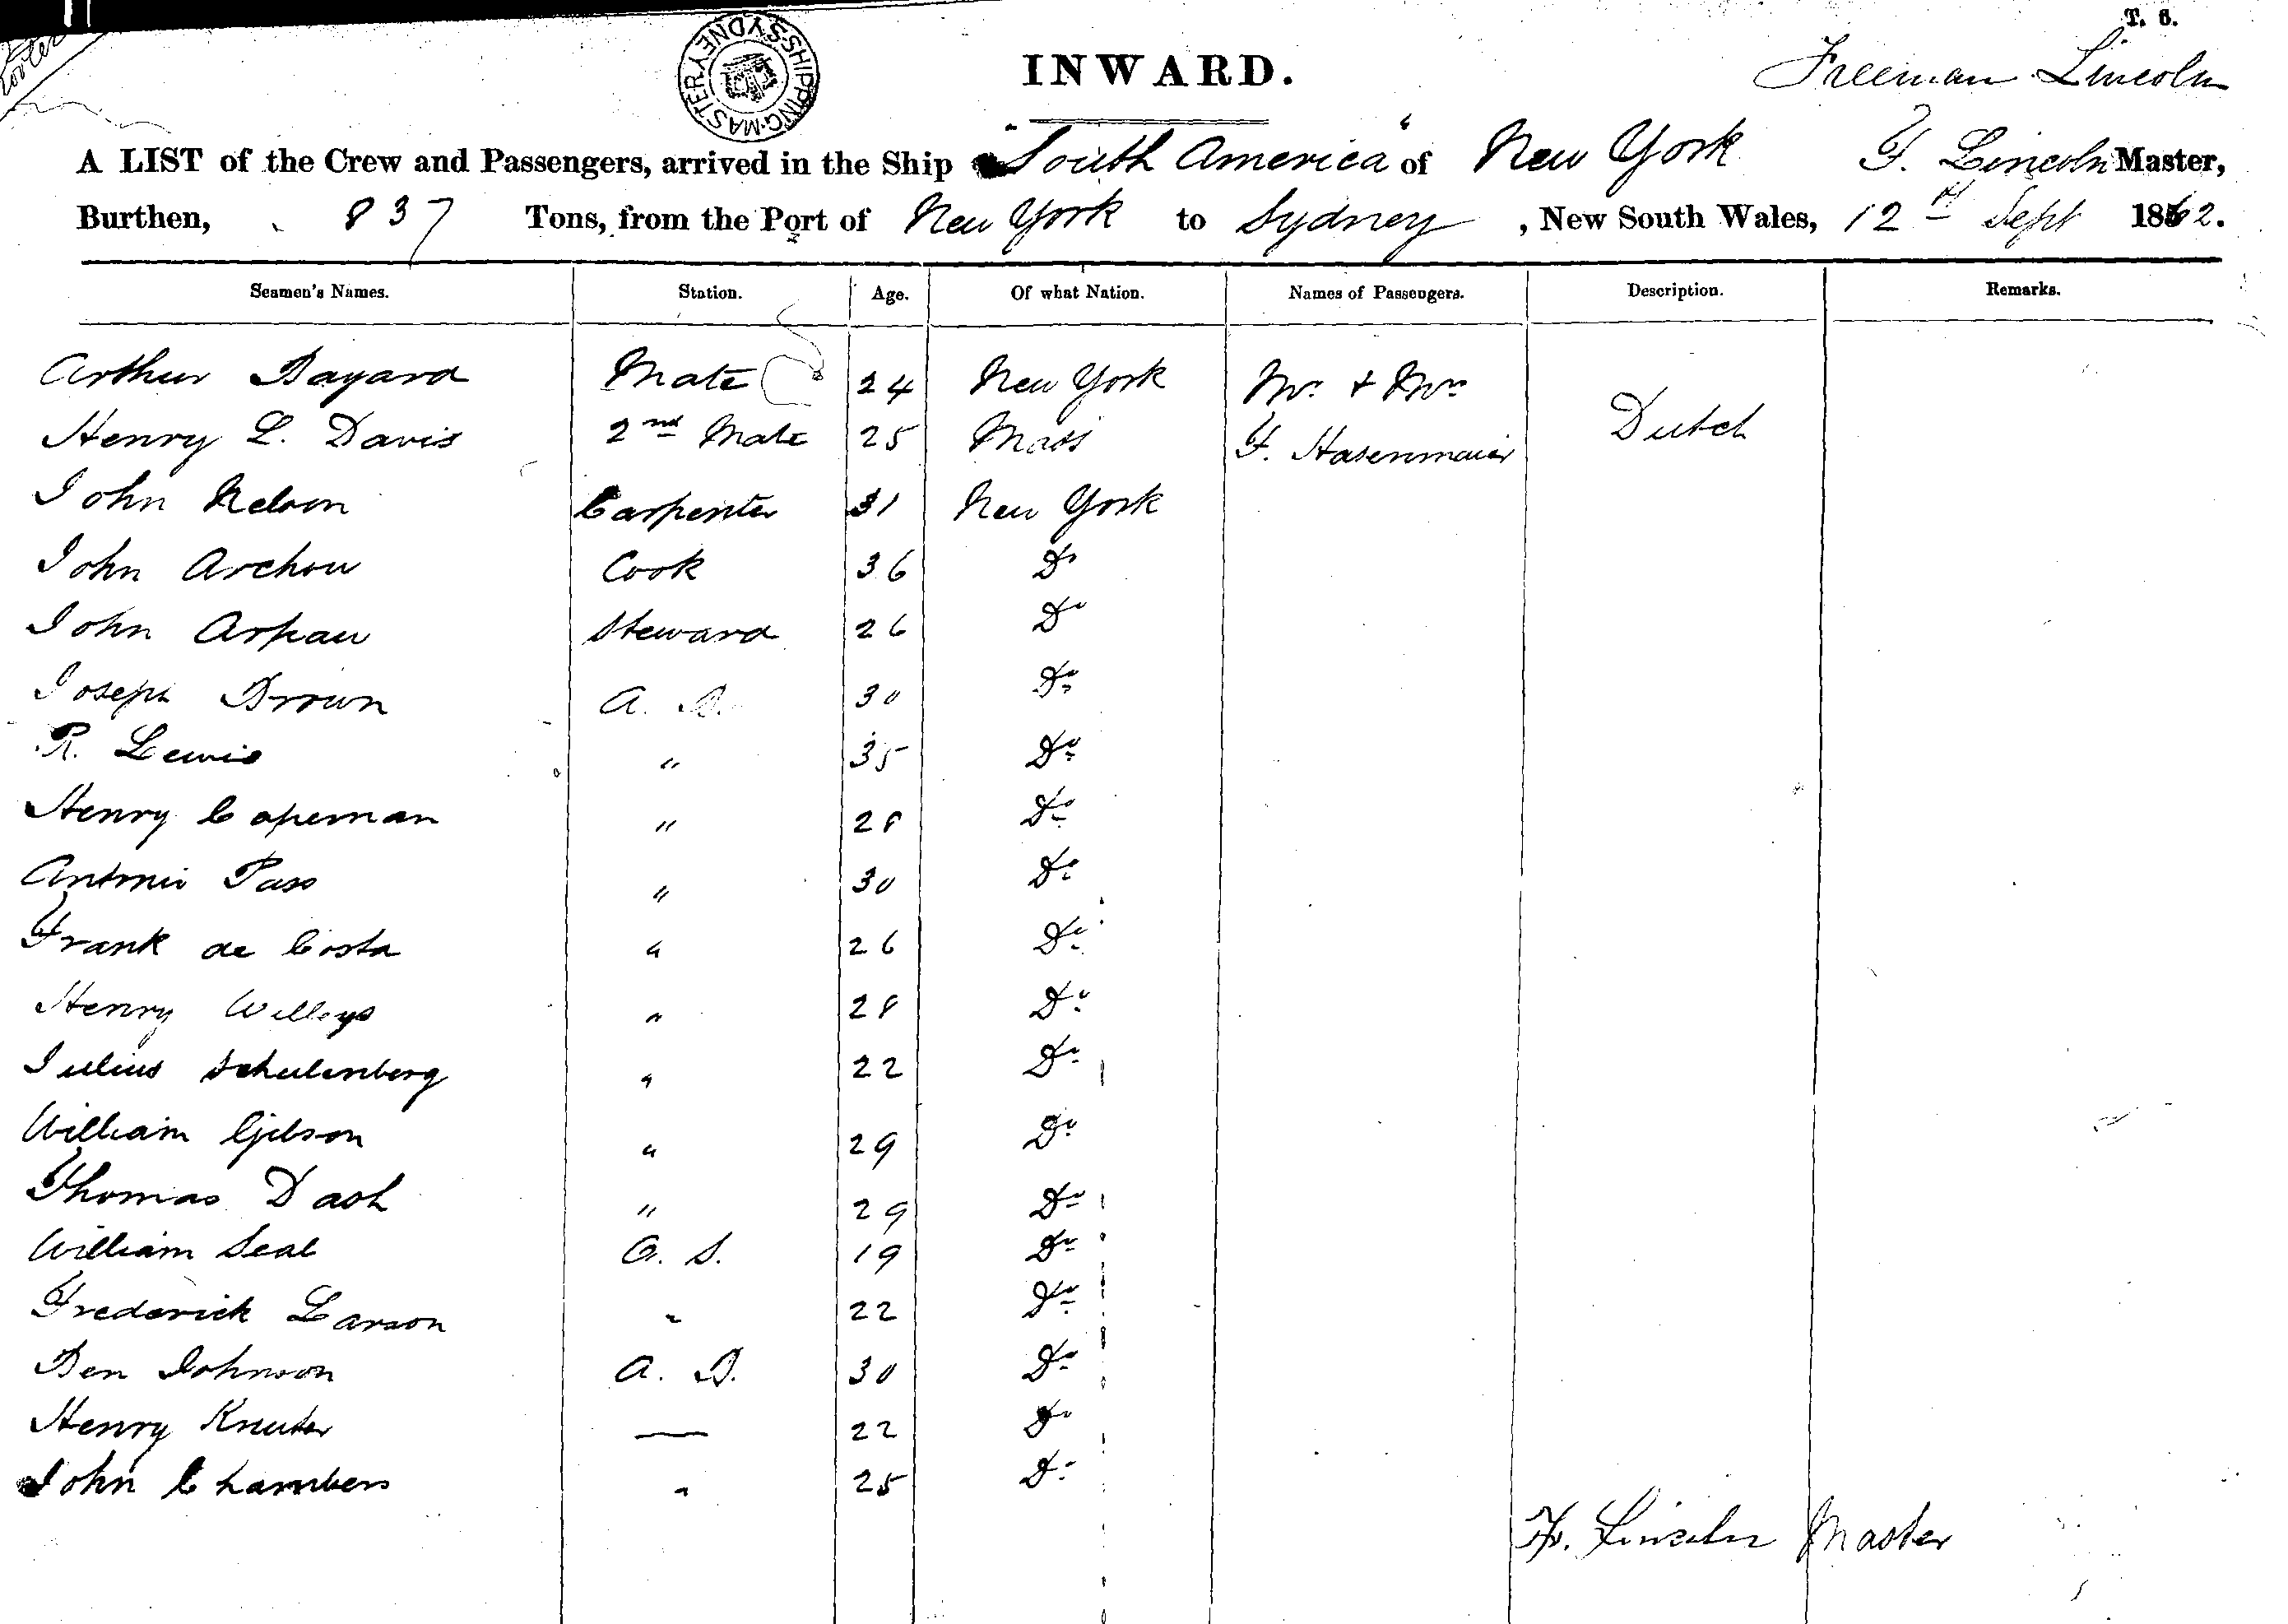 T. 6.
SHIPPING·MASTER SYDNEY
INWARD.
Freeman Lincoln
A LIST of the Crew and Passengers, arrived in the Ship "South America" of New York F. Lincoln Master,
Burthen, 837 Tons, from the Port of New York to Sydney, New South Wales, 12th Sept 1862.
Seamen's Names. Station. Age. Of what Nation. Names of Passengers. Description. Remarks.
Arthur Bayard Mate 24 New York Mr. & Mrs
Henry L. Davis 2nd Mate 25 Mass F. Hasenmaier Dutch
John Nelson Carpenter 31 New York
John Archow Cook 36 Do
John Arpau Steward 26 Do
Joseph Brown A. B. 30 Do
R. Lewis " 35 Do
Henry Copeman " 28 Do
Antonio Pass " 30 Do
Frank de Costa " 26 Do
Henry Willeys " 28 Do
Julius Schulenberg " 22 Do
William Gibson " 29 Do
Thomas Dash " 29 Do
William Seal O. S. 19 Do
Frederick Larson " 22 Do
Ben Johnson A. B. 30 Do
Henry Knuter — 22 Do
John Chambers " 25 Do
F. Lincoln Master